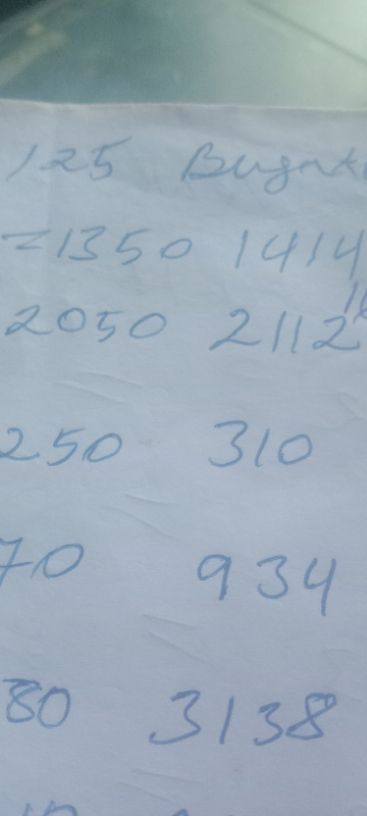 125
=1350 1414
2050 2112
250 310
70 934
80 3138